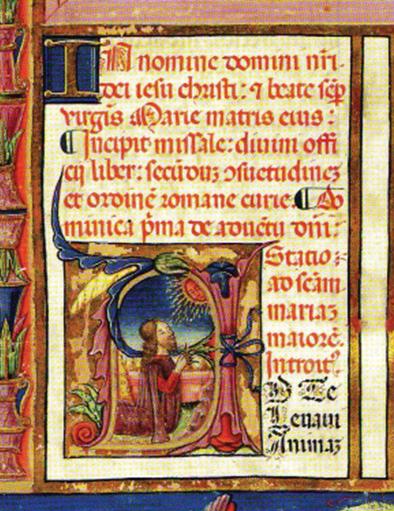 IN nomine domini nr̄i
dei iesu christi: ⁊ beate sēp
virgīs Marie matris eius:
¶ Incipit missale: divini offi
cij liber: secūduȝ ↄsuetudineȝ
et ordinē romane curie. ¶ Do
minica p̄ma de adventu dn̄i:
Statio:
ad scām
mariaȝ
maiorē.
Introit⁹.
AD Te
levavi
Animaȝ